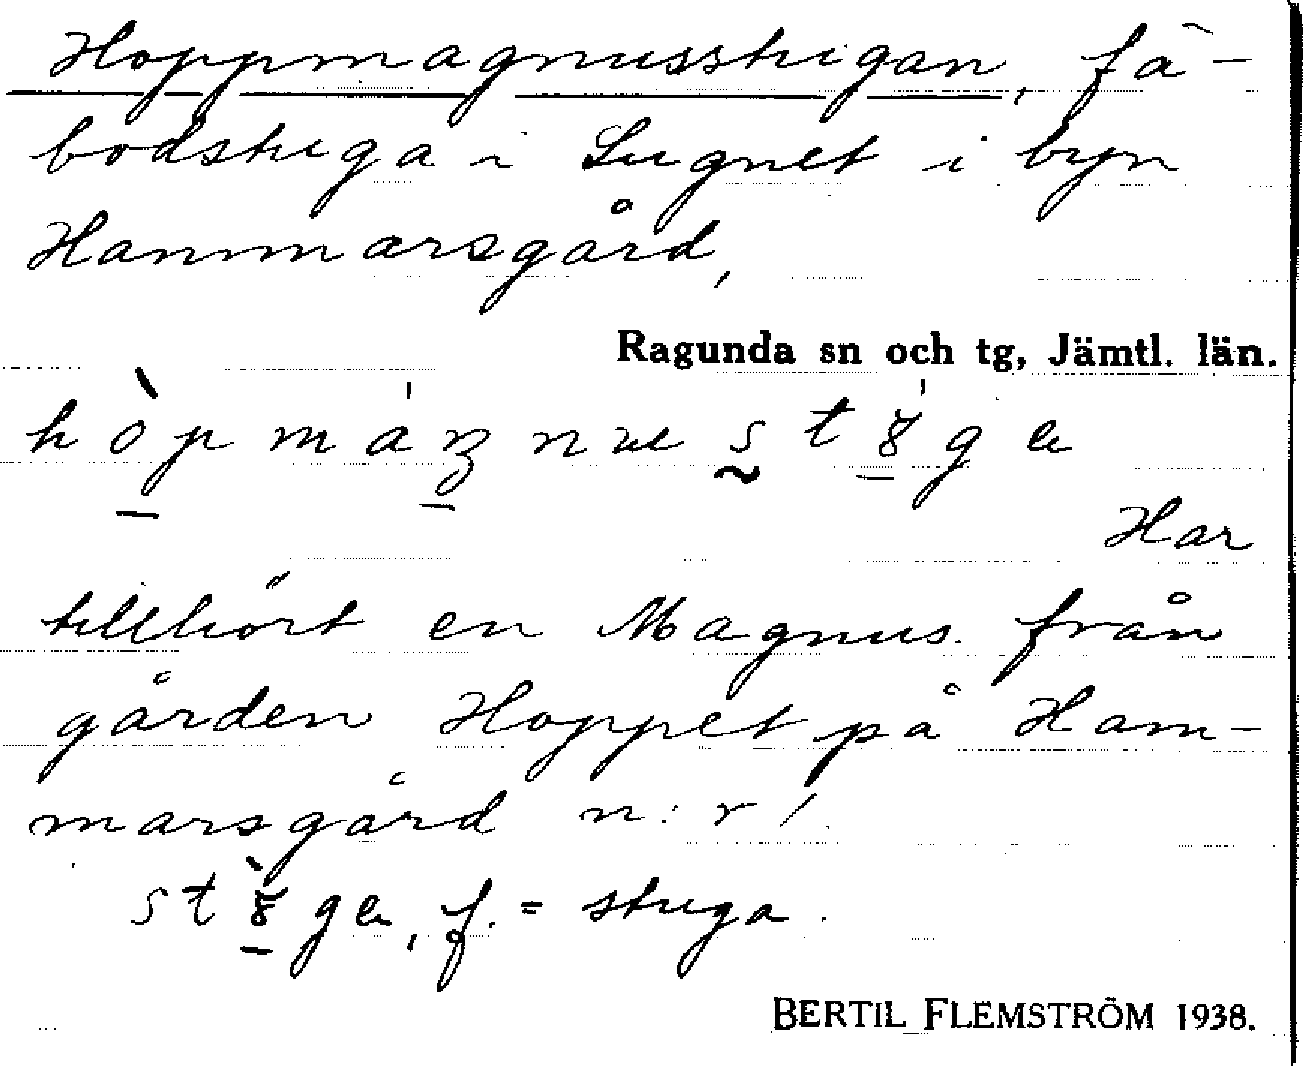 Hoppmagnusstugan, fä-
bodstuga i Lugnet i byn
Hammarsgård,
Ragunda sn och tg, Jämtl. län.
Har
tillhört en Magnus från
gården Hoppet på Ham-
marsgård n:r 1.
f. = stuga.
BERTIL FLEMSTRÖM 1938.